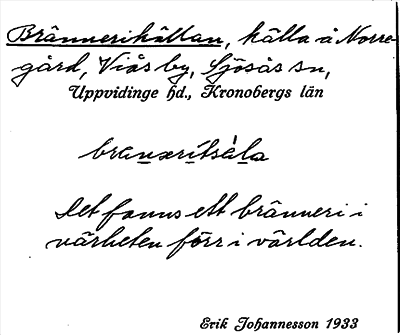 Brännerikällan, källa å Norre-
gård, Viås by, Sjösås sn,
Uppvidinge hd., Kronobergs län
Det fanns ett bränneri i
närheten förr i världen.
Erik Johannesson 1933